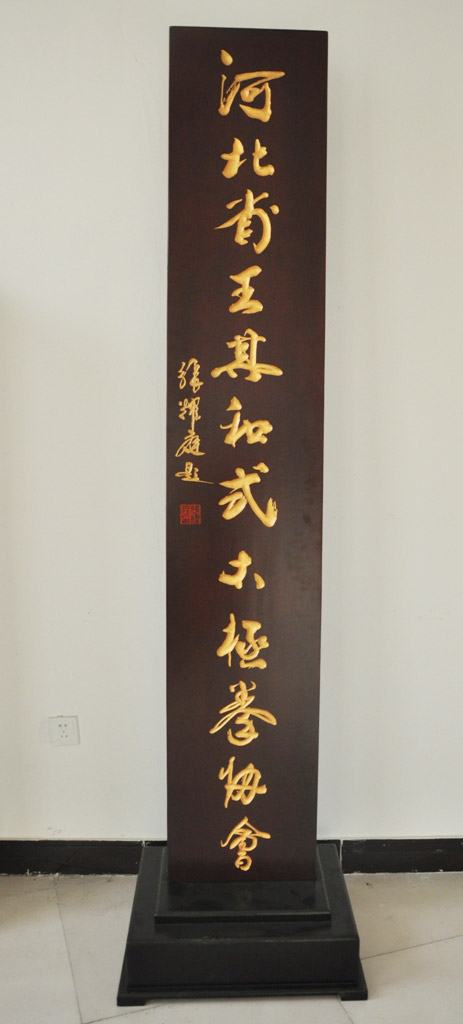 河北省王其和式太極拳协會
張耀庭題